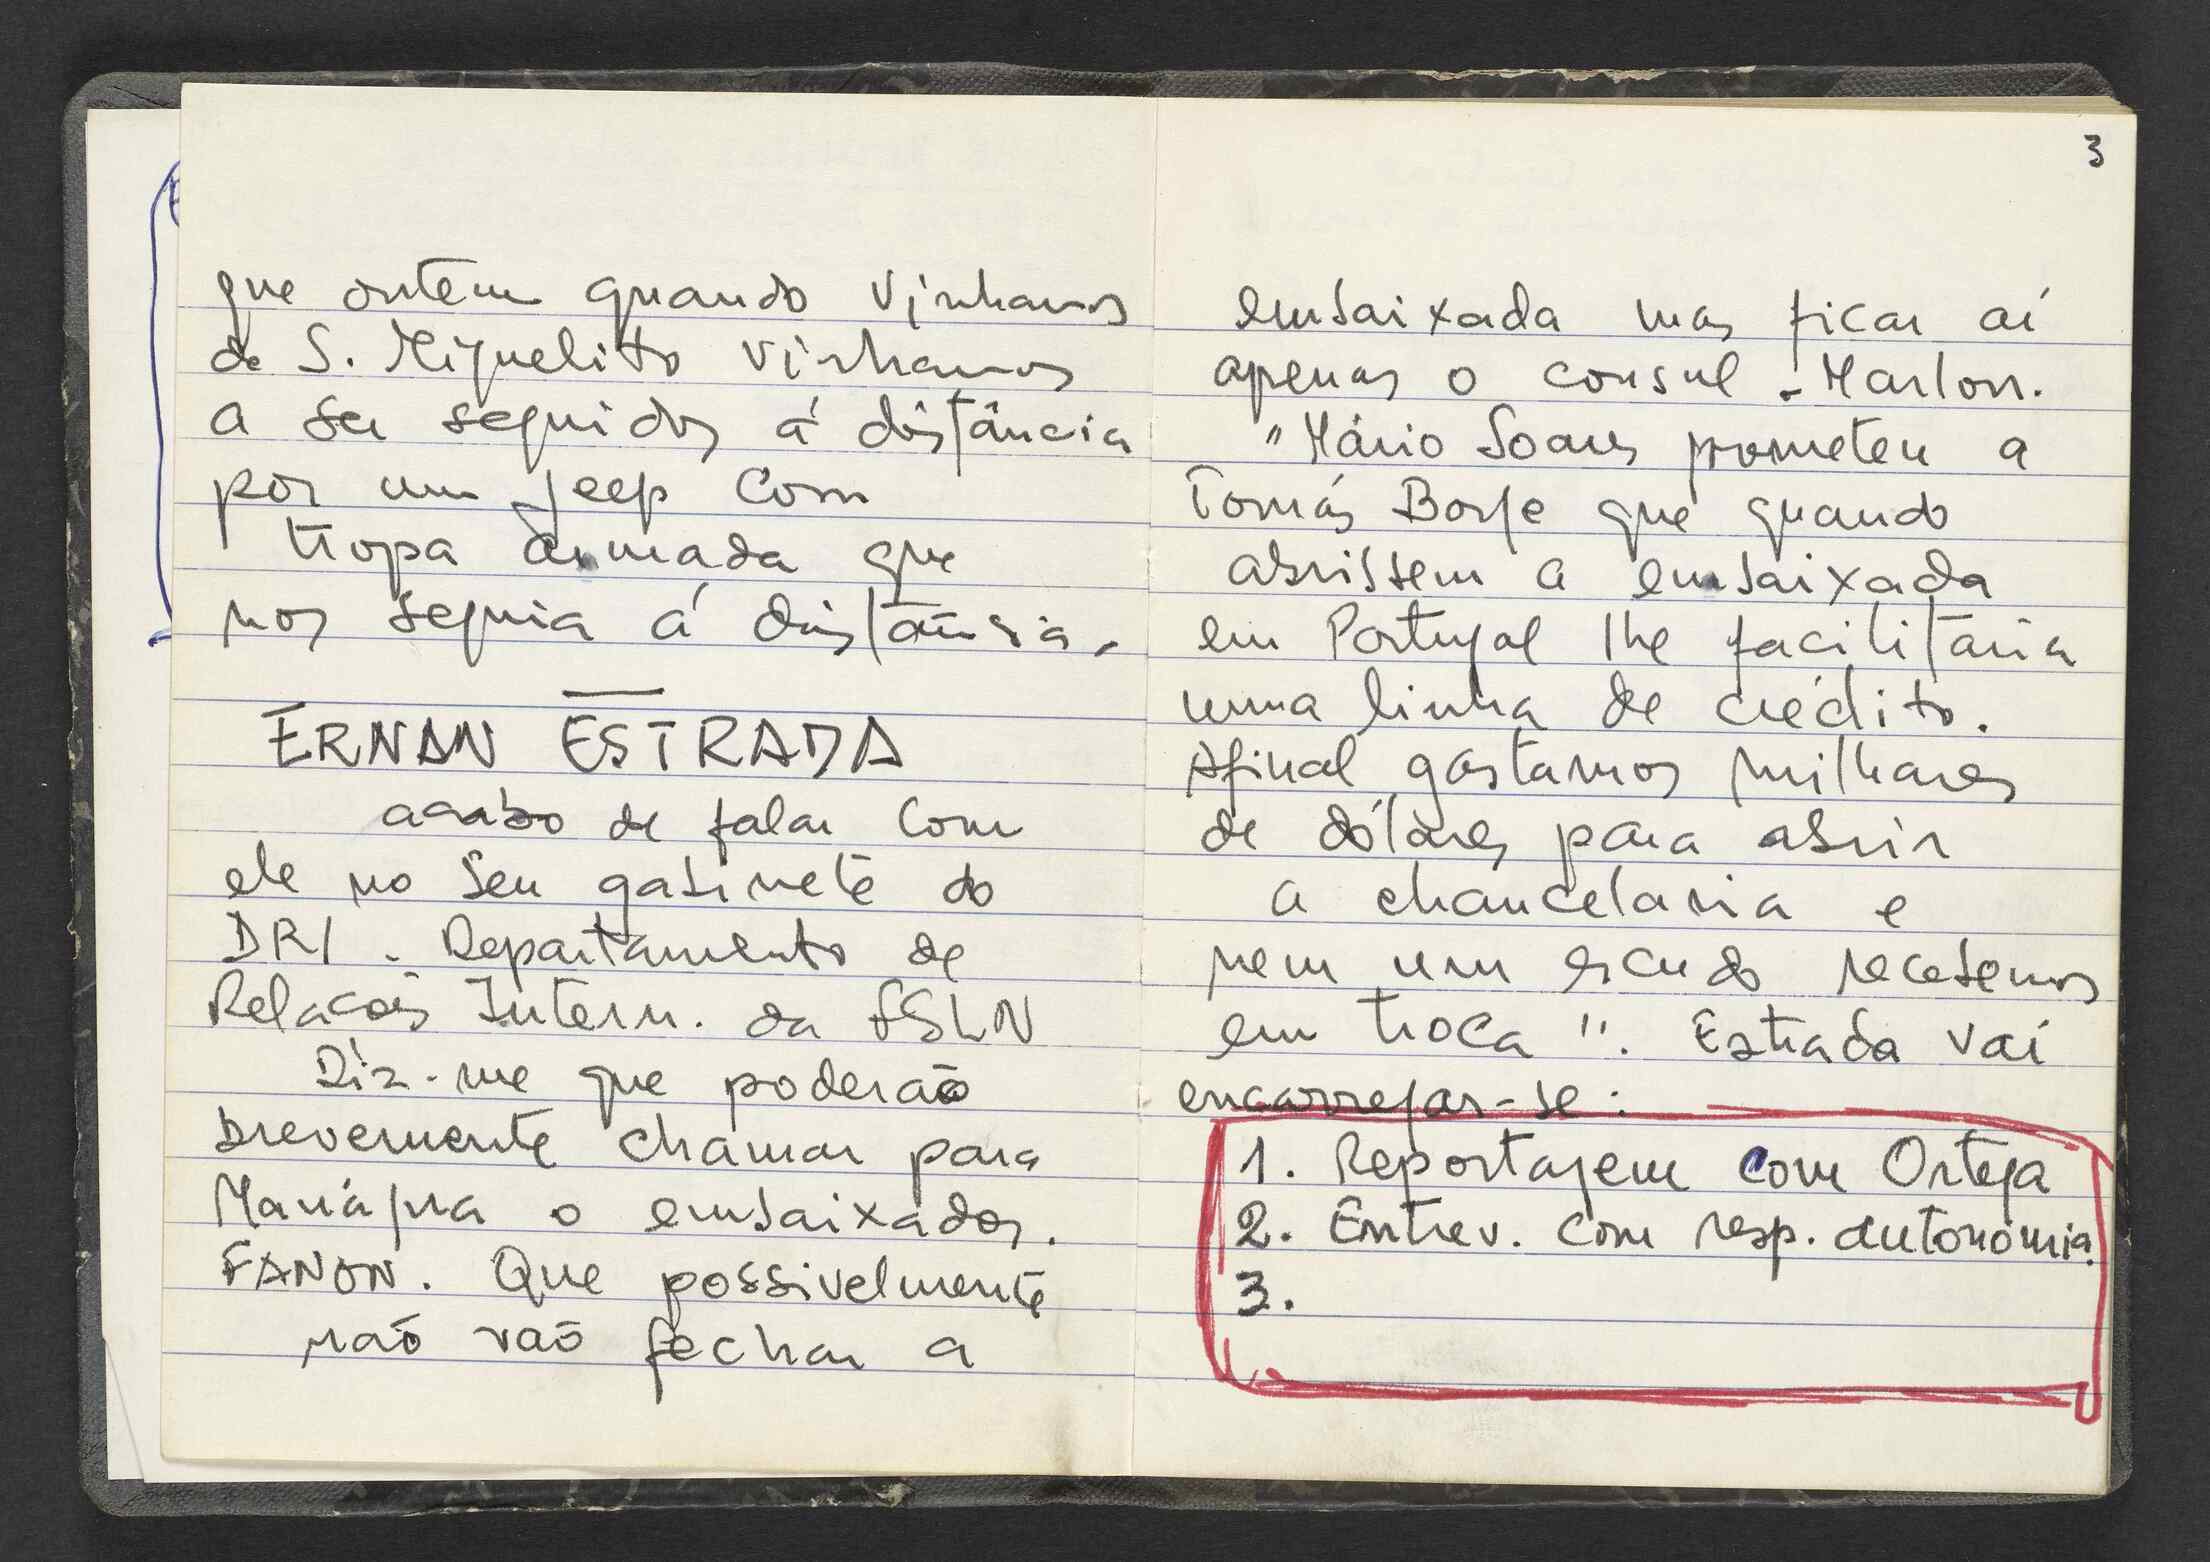 que ontem quando vinhamos
de S. Miguelito vinhamos
a ser seguidos á distância
por um jeep com
tropa armada que
nos seguia á distância.
ERNAN ESTRADA
acabo de falar com
ele no seu gabinete do
DRI - Departamento de
Relacões Intern. da FSLN
Diz-me que poderaõ
brevemente chamar para
Manágua o embaixador.
FANON. Que possivelmente
naõ vaõ fechar a
3
embaixada mas ficar aí
apenas o consul - Marlon.
"Mário Soares prometeu a
Tomás Borge que quando
abrissem a embaixada
em Portugal lhe facilitaria
uma linha de crédito.
Afinal gastamos milhares
de dólares para abrir
a chancelaria e
nem um escudo recebemos
em troca". Estrada vai
encarregar-se:
1. Reportagem com Ortega
2. Entrev. com resp. autonómia.
3.